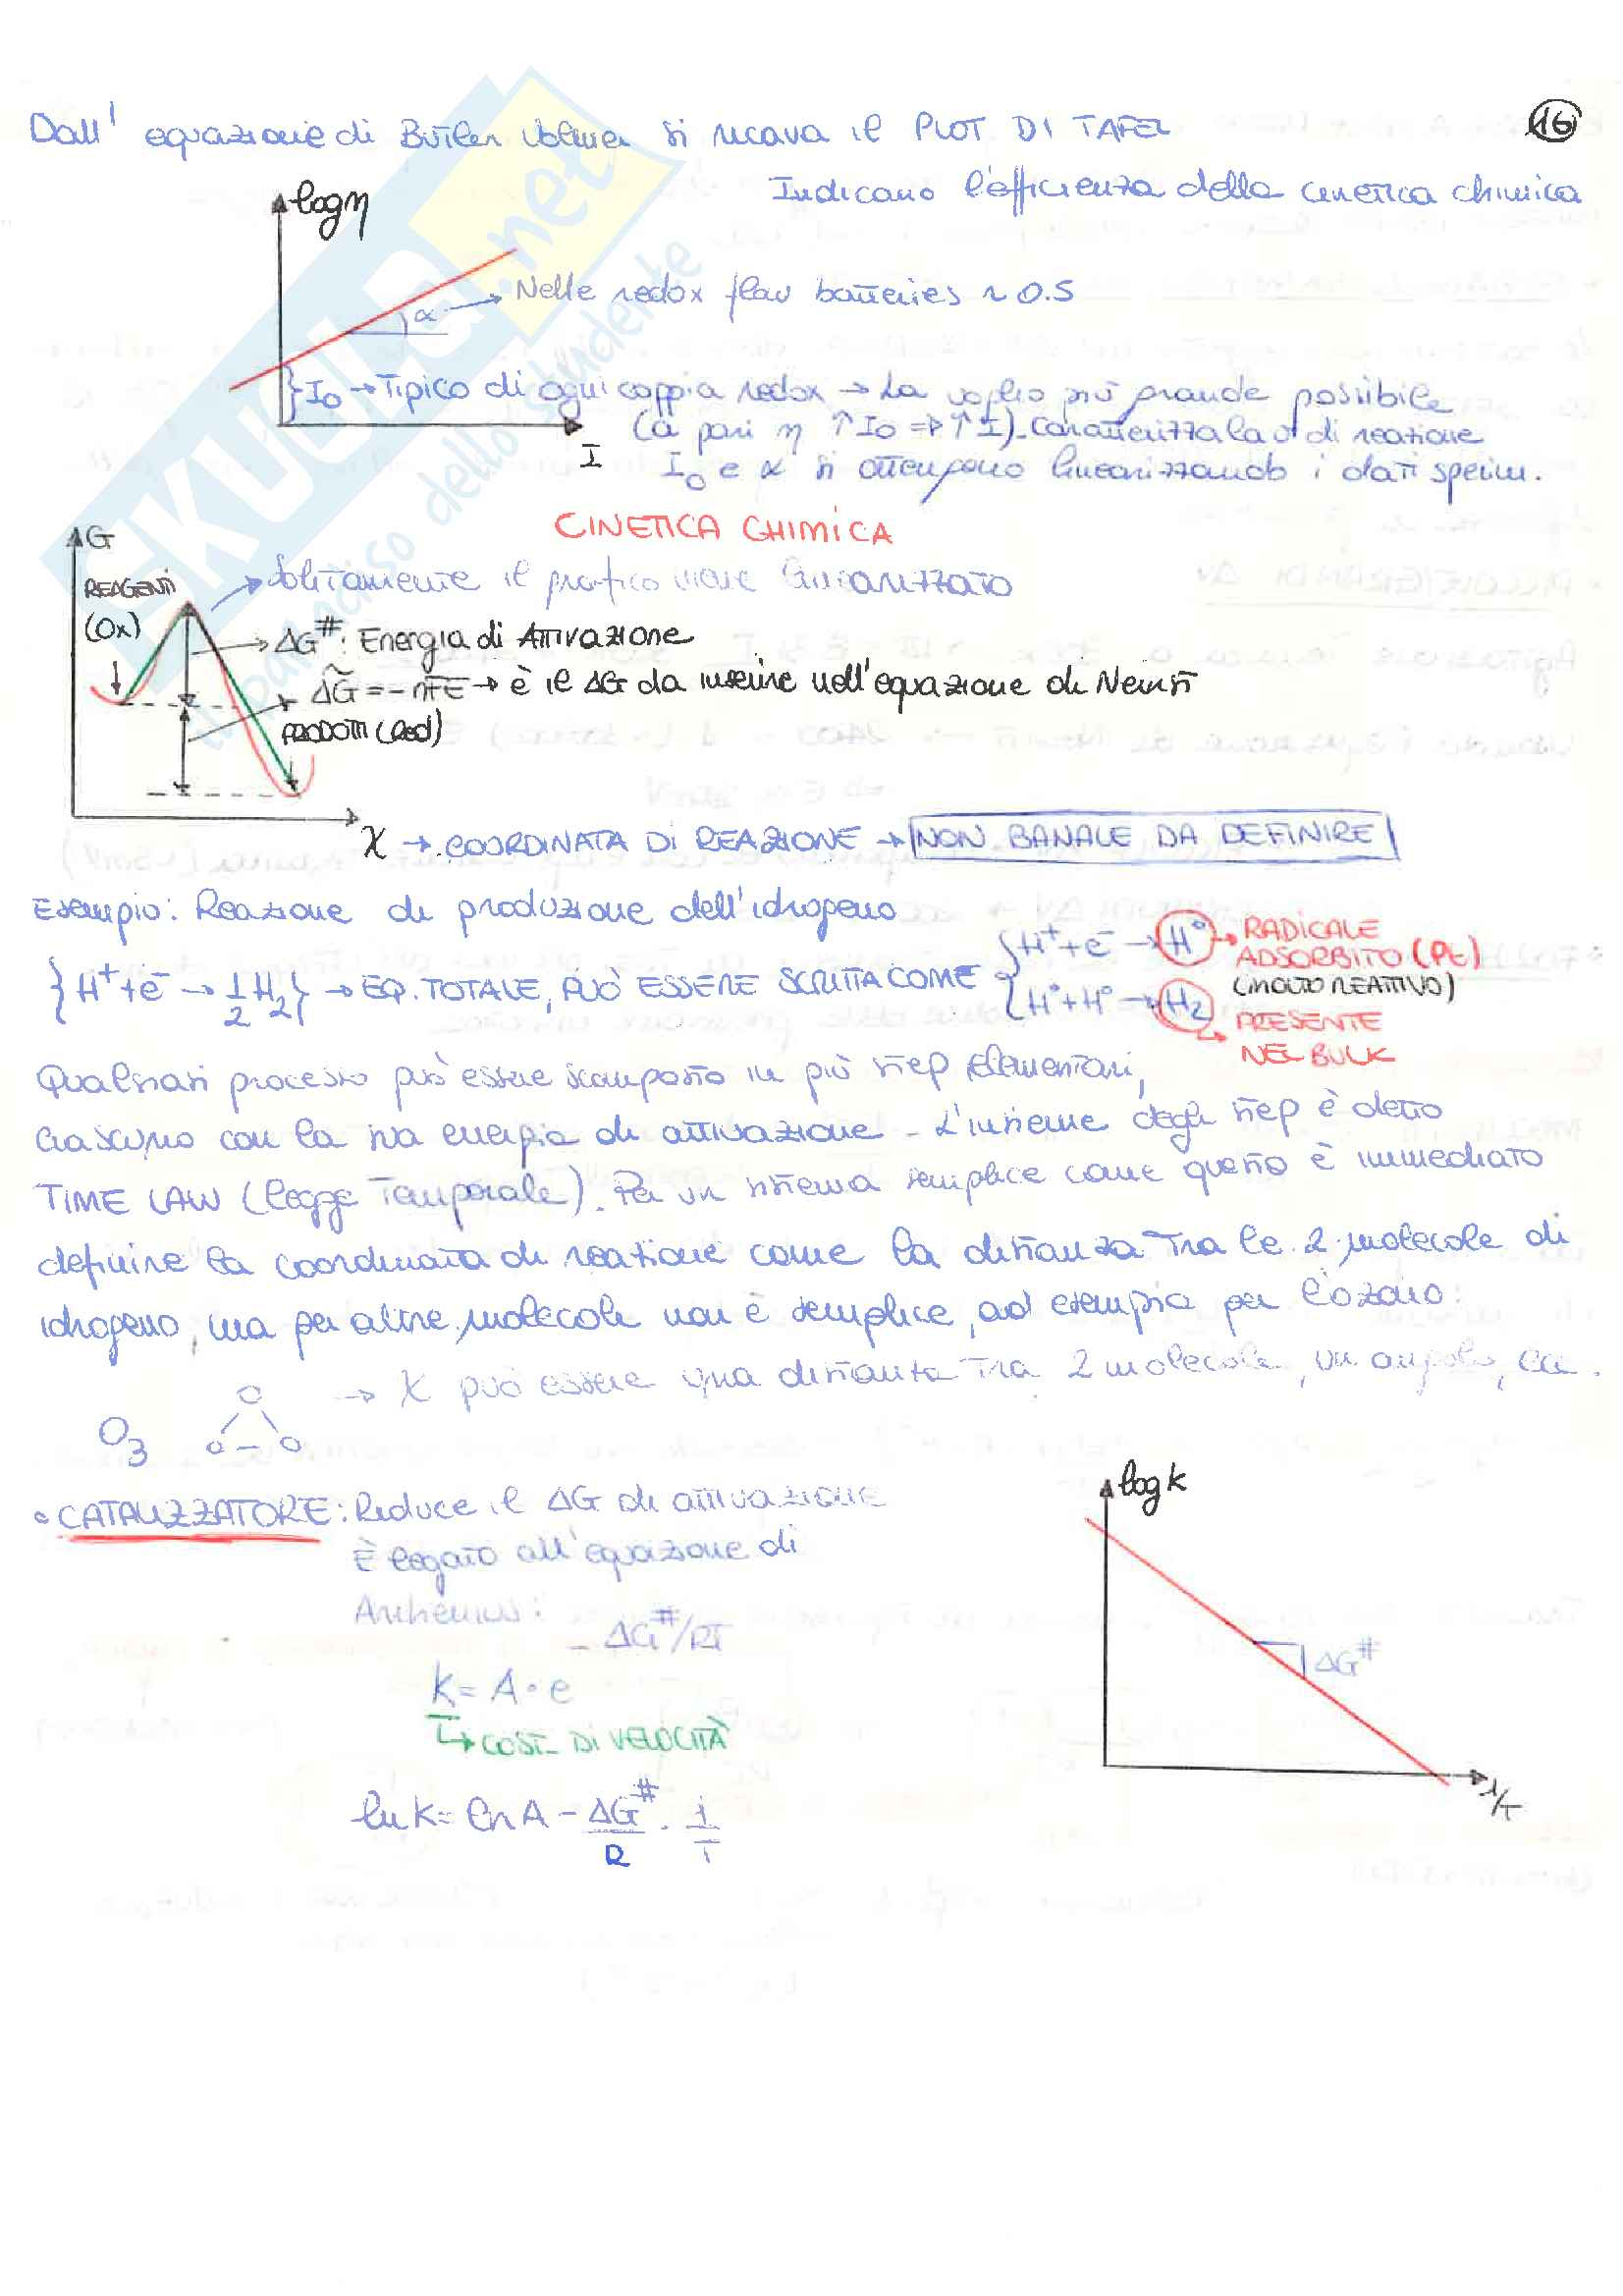 Dall' equazione di Butler Volmer si ricava il PLOT DI TAFEL
16
Indicano l'efficienza della cinetica chimica
log η
α → Nelle redox flow batteries ~ 0.5
} I₀ → Tipico di ogni coppia redox → La voglio più grande possibile
(a pari η ↑ I₀ => ↑ I). Caratterizza la v di reazione
I
I₀ e α si ottengono linearizzando i dati sperim.
SKUOLA.net
il paradiso dello studente
CINETICA CHIMICA
G
→ Solitamente il grafico viene linearizzato
REAGENTI
(Ox)
→ ΔG#: Energia di Attivazione
ΔG̃ = - nFE → è il ΔG da inserire nell'equazione di Nernst
PRODOTTI (Red)
χ → COORDINATA DI REAZIONE → NON BANALE DA DEFINIRE
Esempio: Reazione di produzione dell'idrogeno
{H⁺ + e⁻ → 1/2 H₂} → EQ. TOTALE, PUÒ ESSERE SCRITTA COME
{ H⁺ + e⁻ → H° → RADICALE ADSORBITO (Pt)
(MOLTO REATTIVO)
H° + H° → H₂
→ PRESENTE NEL BULK
Qualsiasi processo può essere scomposto in più step elementari,
ciascuno con la sua energia di attivazione. L'insieme degli step è detto
TIME LAW (legge Temporale). Per un sistema semplice come questo è immediato
definire la coordinata di reazione come la distanza tra le 2 molecole di
idrogeno, ma per altre molecole non è semplice, ad esempio per l'ozono:
→ χ può essere una distanza tra 2 molecole, un angolo,
O₃
O
O - O
• CATALIZZATORE: Riduce il ΔG di attivazione
È legato all'equazione di
Arrhenius:
k = A · e - ΔG#/RT
↳ COST. DI VELOCITÀ
ln k = ln A - ΔG#/R · 1/T
log k
ΔG#
1/T